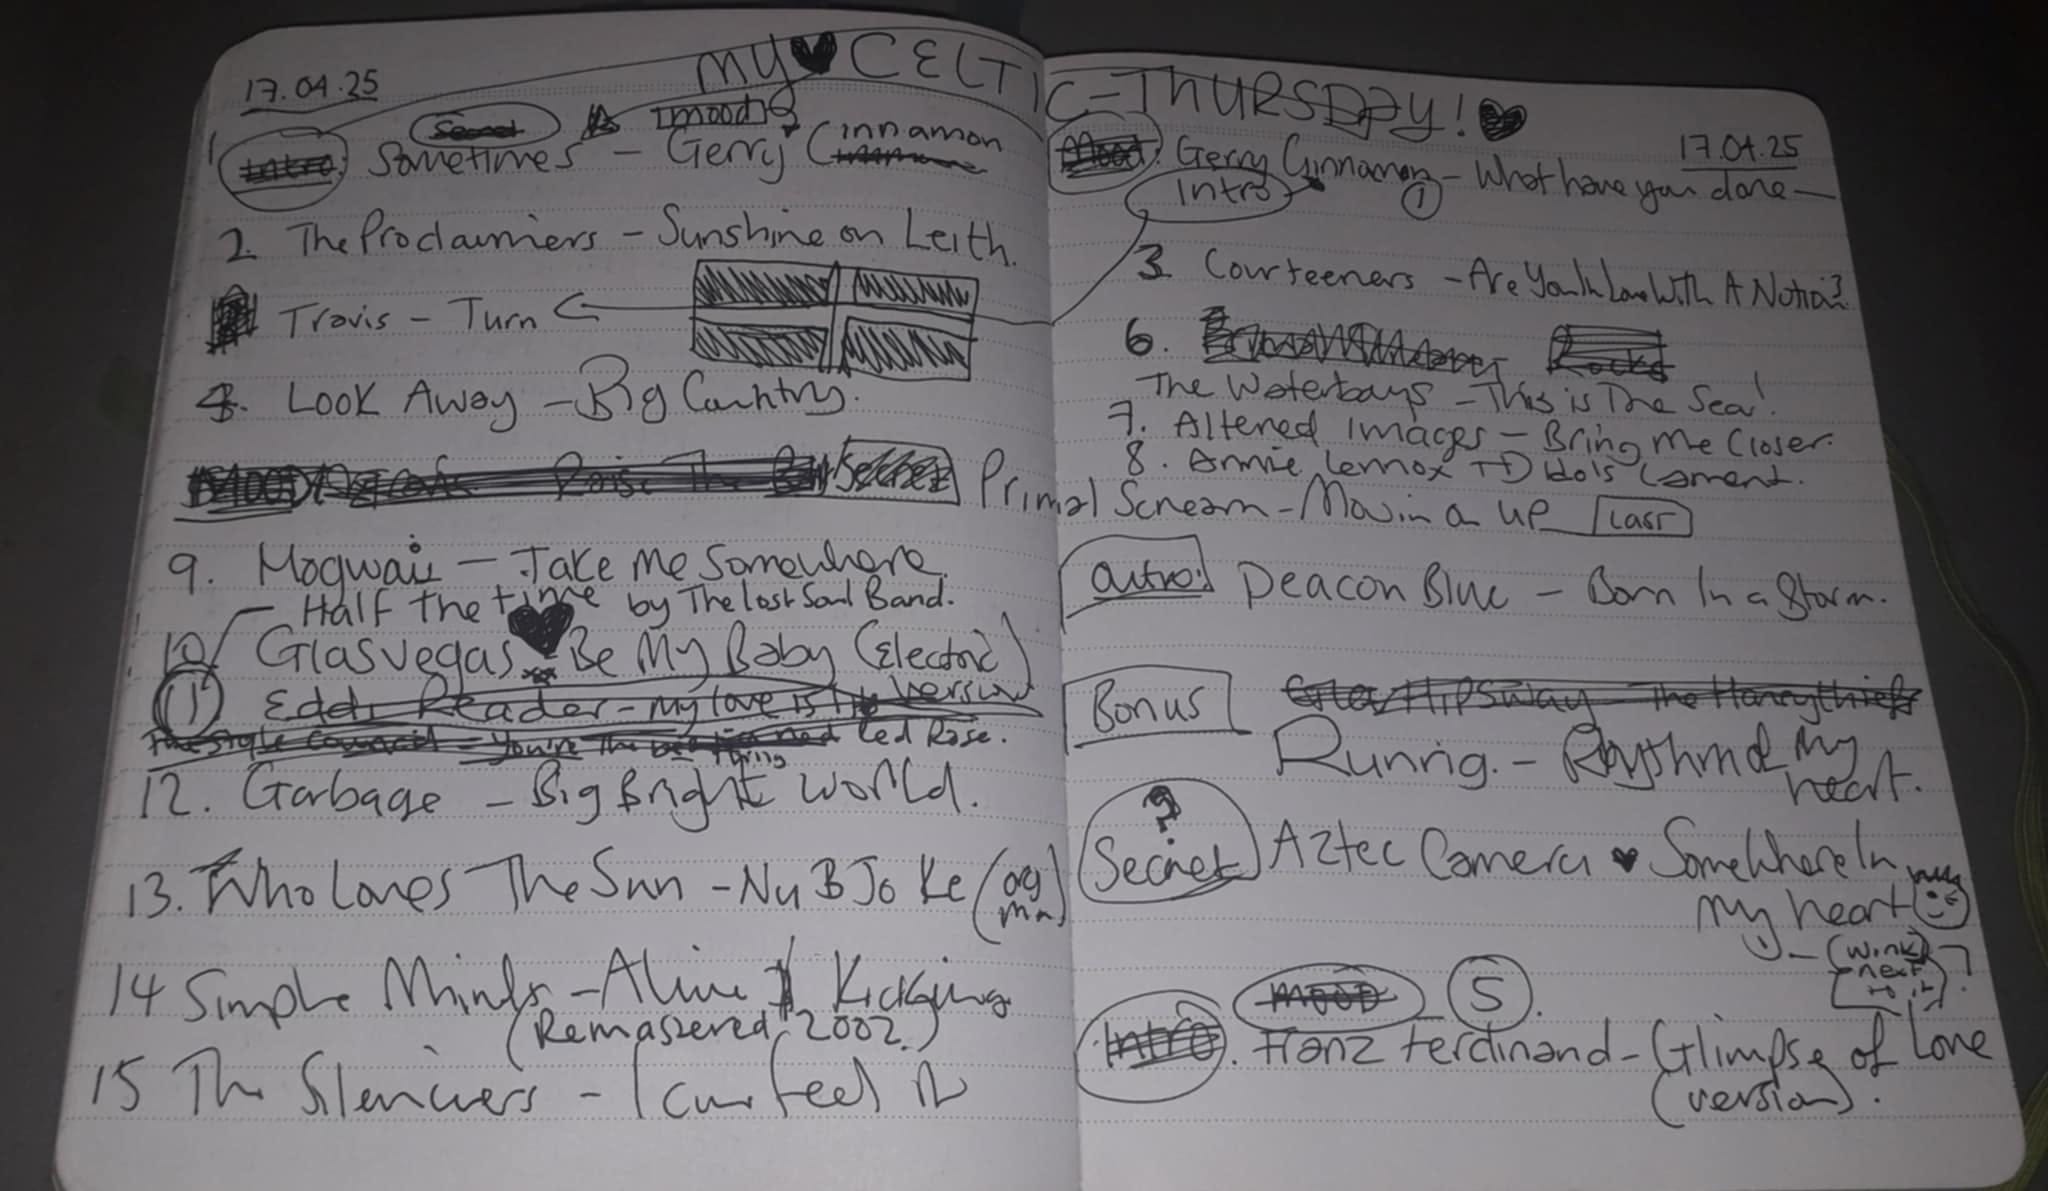 17.04.25
MY CELTIC-THURSDAY!
Secret
mood
1 Intro: Sometimes - Gerry Cinnamon
2. The Proclaimers - Sunshine on Leith.
Travis - Turn
4. Look Away - Big Country.
Raise The
9. Mogwai - Take Me Somewhere
Half the time by The Lost Soul Band.
10 Glasvegas Be My Baby (Electronic
11 Eddi Reader - My love is like version
The Style Council - You're The best thing Red Rose.
12. Garbage - Big Bright World.
13. Who Loves The Sun - Nu B Jo Ke (org mn)
14 Simple Minds - Alive & Kicking
(Remastered 2002.)
15 The Silencers - I can feel it
17.04.25
Mood: Gerry Cinnamon - What have you done
Intro 1
3 Courteeners - Are You In Love With A Notion?
6. Rocks
The Waterboys - This is The Sea!
7. Altered Images - Bring Me Closer.
8. Annie Lennox Dido's Lament.
Primal Scream - Movin on up Last
Outro: Deacon Blue - Born In a Storm.
Bonus Hipsway The Honeythief
Runrig. - Rhythm of My
heart.
?
Secret Aztec Camera Somewhere In
my heart
(Wink)
next
to it
mood S.
Intro. Franz Ferdinand - Glimpse of Love
(version).